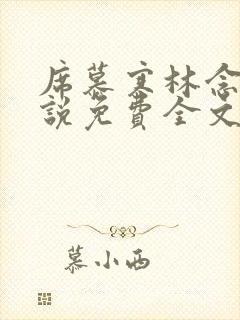 席慕寒林念
説免費全文
慕小西